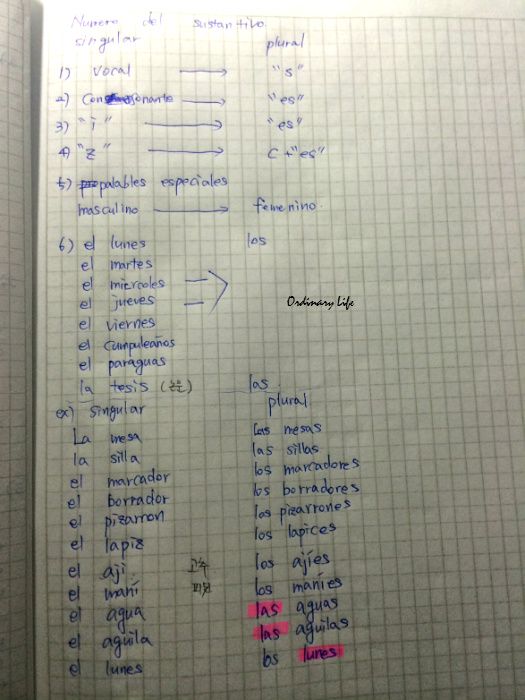 Numero del sustantivo.
singular plural
1) vocal → "s"
2) consonante → "es"
3) "í" → "es"
4) "z" → c + "es"
5) palables especiales
masculino → femenino.
6) el lunes los
el martes
el miercoles
el jueves
Ordinary Life
el viernes
el cumpuleaños
el paraguas
la tesis (논문) las
ex) singular plural
La mesa Las mesas
la silla las sillas
el marcador los marcadores
el borrador los borradores
el pizarron los pizarrones
el lapiz los lapices
el aji 고추 los ajíes
el maní 땅콩 los maníes
el agua las aguas
el aguila las aguilas
el lunes los lunes